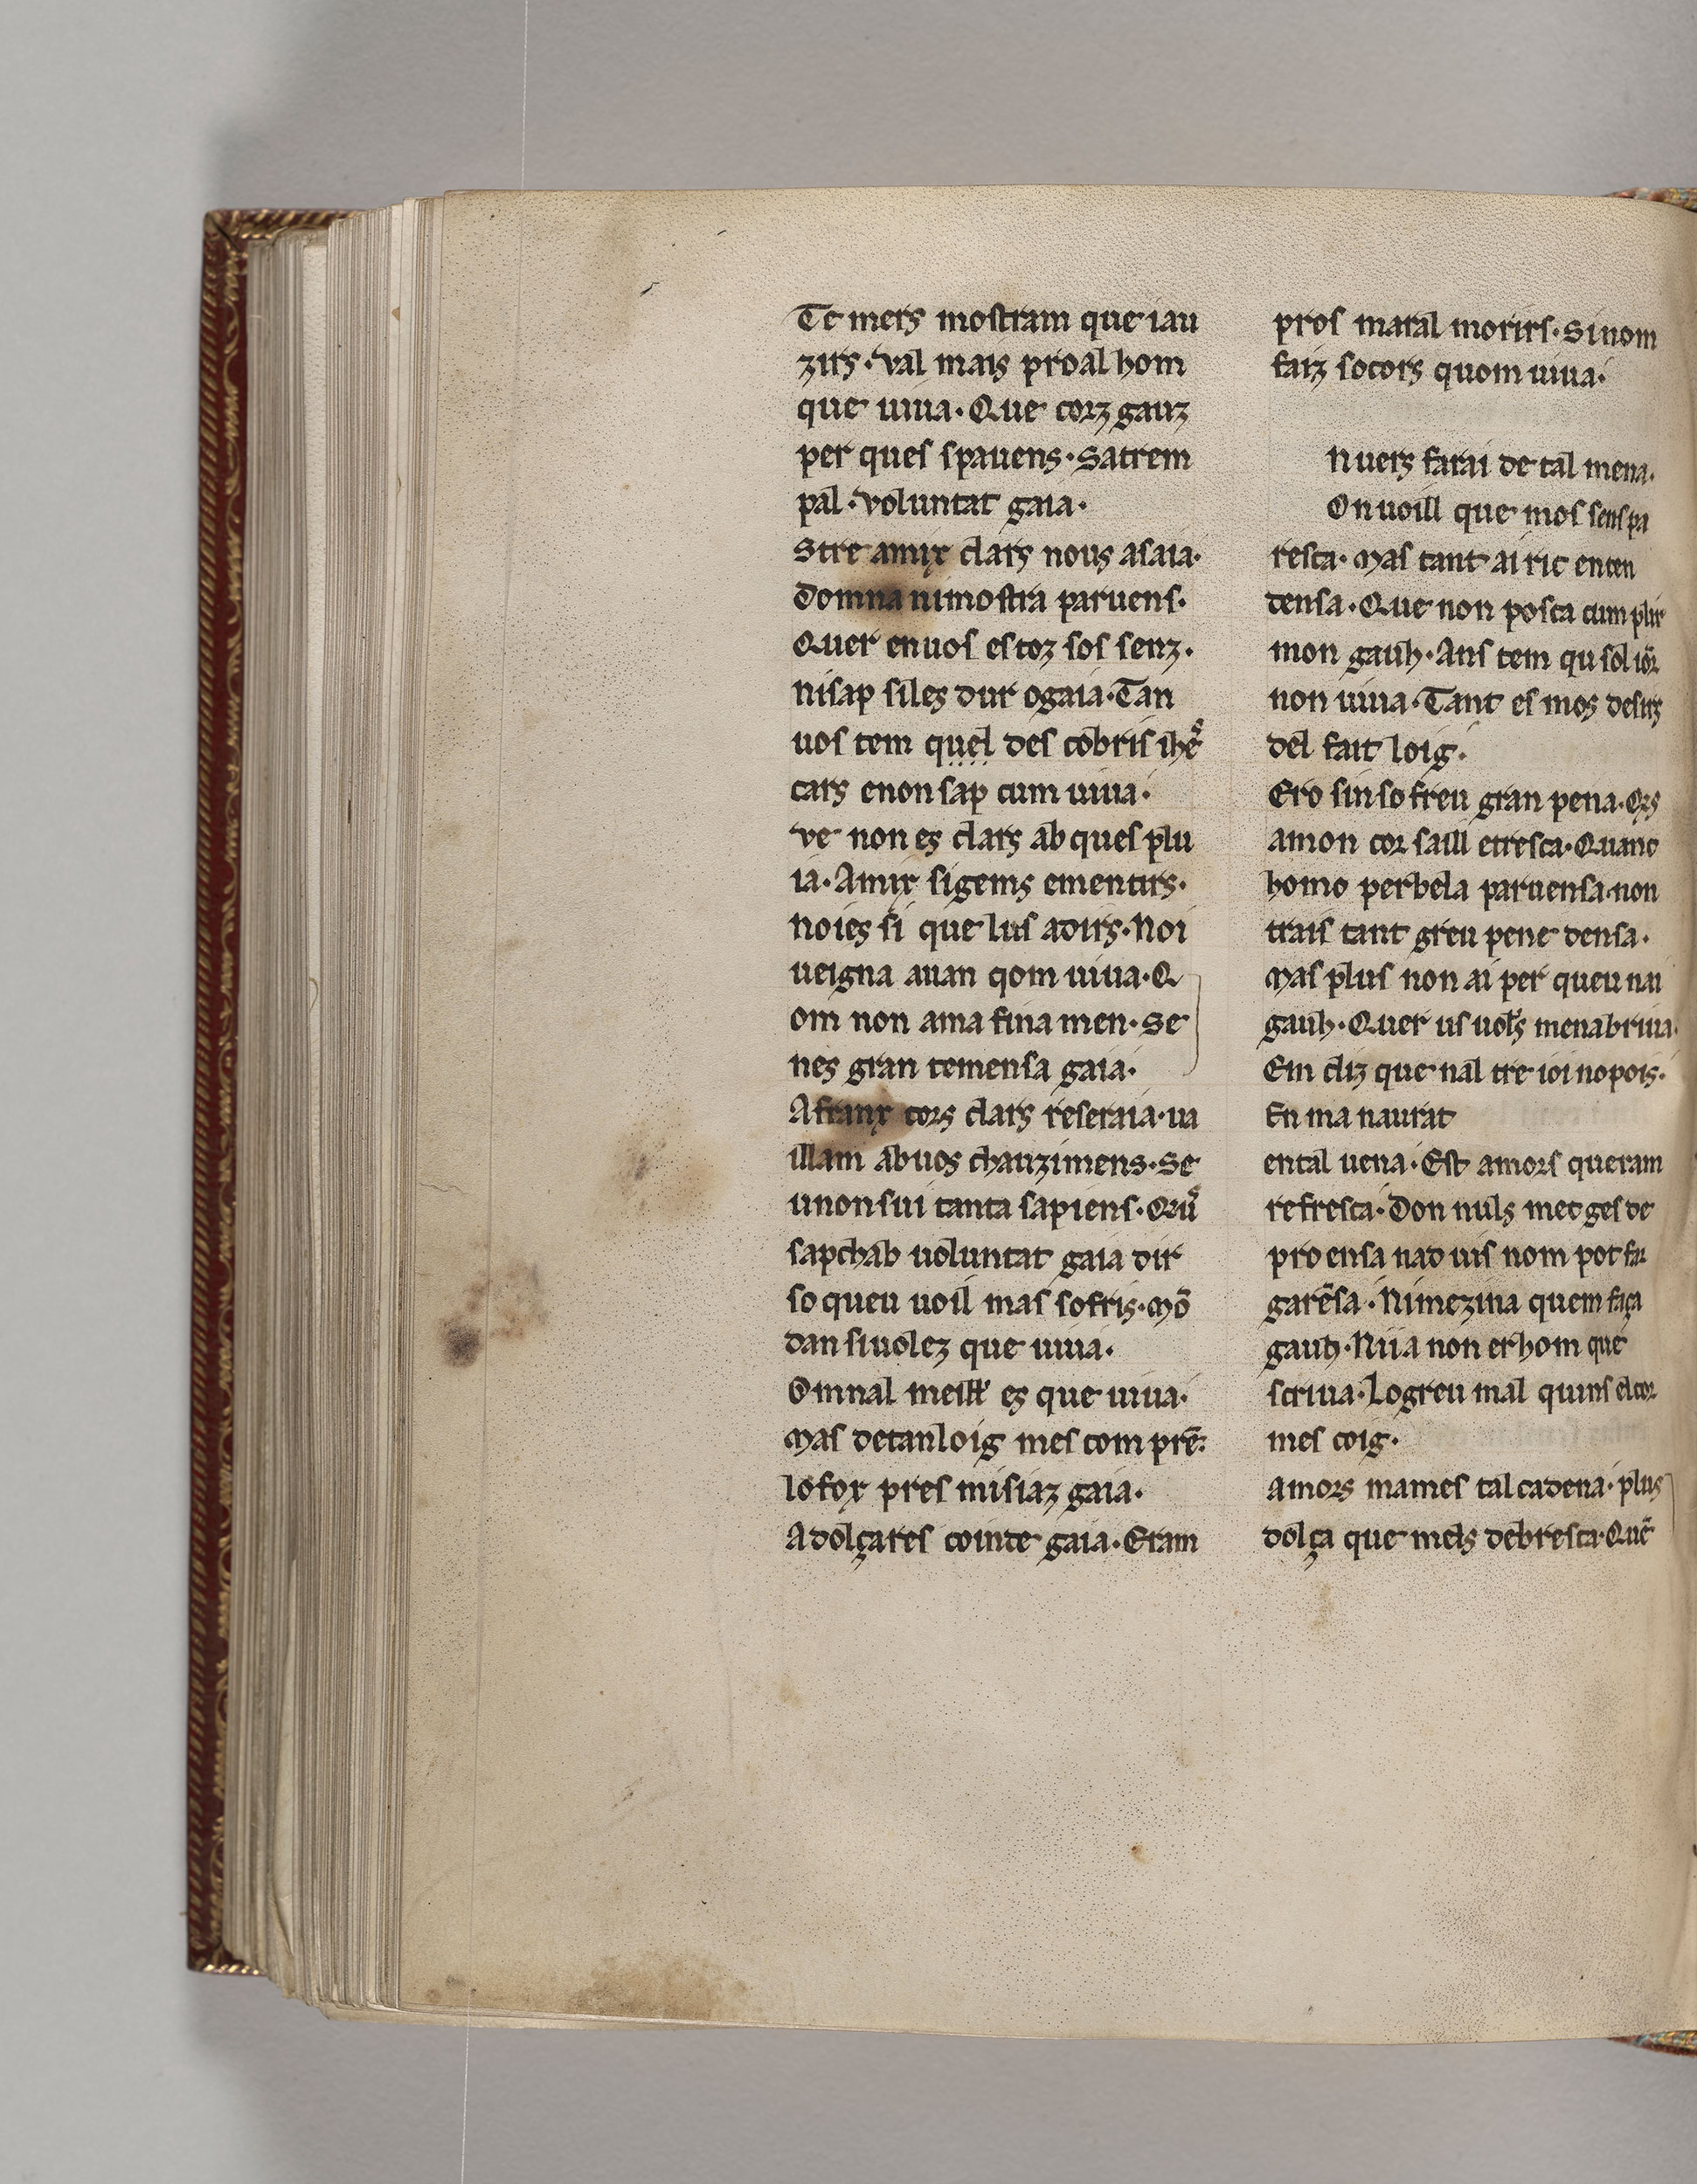 Te mers mostram que iau
zirs· val mais proal hom
que uiua· Que corz gauz
per ques spauens· Satrem
pal· voluntat gaia·
Stre amix clars nous asaia·
Domna ni mostra paruens·
Quer en uos es toz sos senz·
ni sap siles dur o gaia· Tan
uos tem quel des cobris
cars e non sap cum uiua·
ve non es clars ab ques plu
ia· Amix sigems ementirs·
noies si que lus adirs· Noi
ueigna auan qom uiua· Q
om non ama fina men· Se
nes gran temensa gaia·
A franx cors clars reseraia· ua
illam ab uos chauzimens· Se
u non sui tanta sapiens·
sapchab uoluntat gaia dir
so queu uoil mas sofris· Mō
dan si uolez que uiua·
Om nal es que uiua·
Mas de tan loig mes com prē·
lo fox pres mi siaz gaia·
A dolçares cointe gaia· Eram
pros maral morirs· Si nom
faiz socors quom uiua·
n uers farai de tal mena·
On uoill que mos sens pa
resca· Mas tant ai ric enten
densa· Que non posca cumplir
mon gauh· Ans tem qu sol iōr
non uiua· Tant es mos desirs
del fait loig·
Ero sinsofreu gran pena· Qrs
a mon cor saill e tresca· Quanc
homo per bela paruensa· non
trais tant greu pene densa·
Mas plus non ai per queu nai
gauh· Quer us uols menabriua·
Em diz que nal tre ioi no pois·
En ma naurat
ental uena· Est amors queram
refresca· Don nuls metges de
pro ensa nad uis nom pot far
garēsa· Ni mezina quem faça
gauh· Ni ia non er hom que
scriua· Lo greu mal quins el cor
mes coig·
amors mames tal cadena· plus
dolça que mels de bresca· Quē